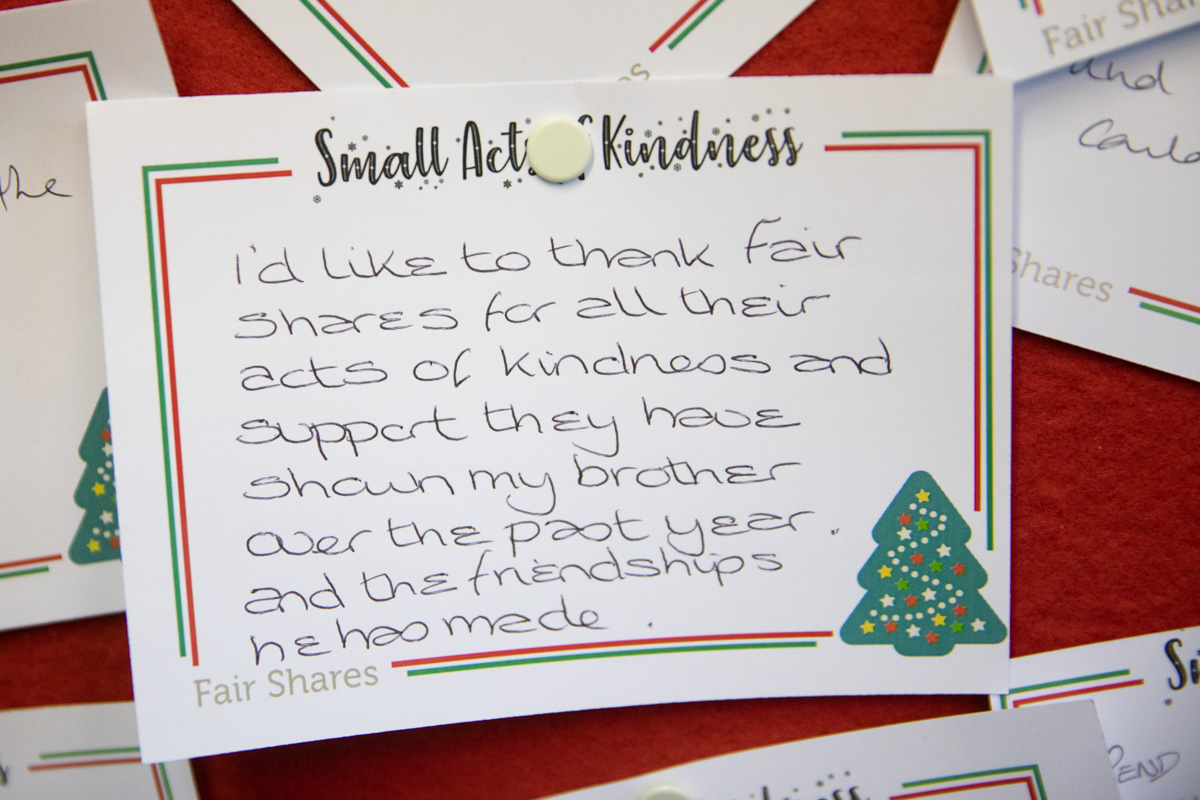 Small Acts of Kindness
I'd like to thank Fair
shares for all their
acts of kindness and
support they have
shown my brother
over the past year.
and the friendships
he has made.
Fair Shares
the
Fair Shares
and
Shares